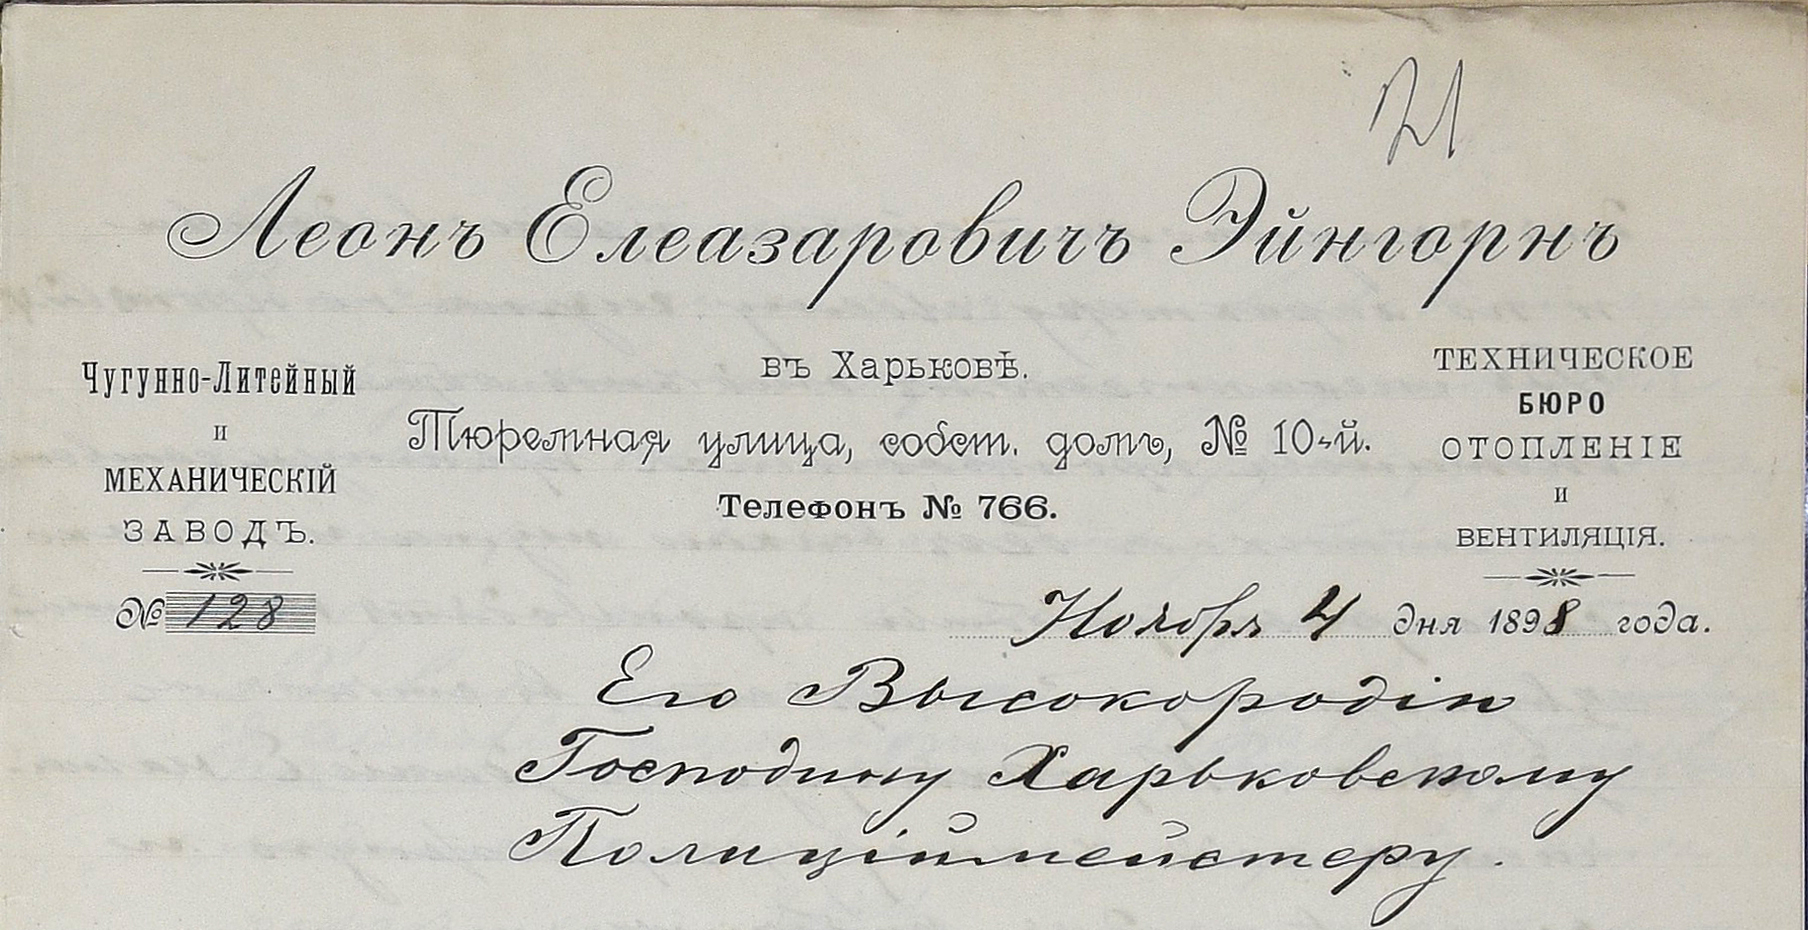 21
Леонъ Елеазаровичъ Эйнгорнъ
въ Харьковѣ.
Тюремная улица, собст. домъ, № 10-й.
Телефонъ № 766.
Чугунно-Литейный
и
МЕХАНИЧЕСКІЙ
ЗАВОДЪ.
№ 128
ТЕХНИЧЕСКОЕ
БЮРО
ОТОПЛЕНІЕ
и
ВЕНТИЛЯЦІЯ.
Ноября 4 дня 1898 года.
Его Высокородію
Господину Харьковскому
Поліціймейстеру.